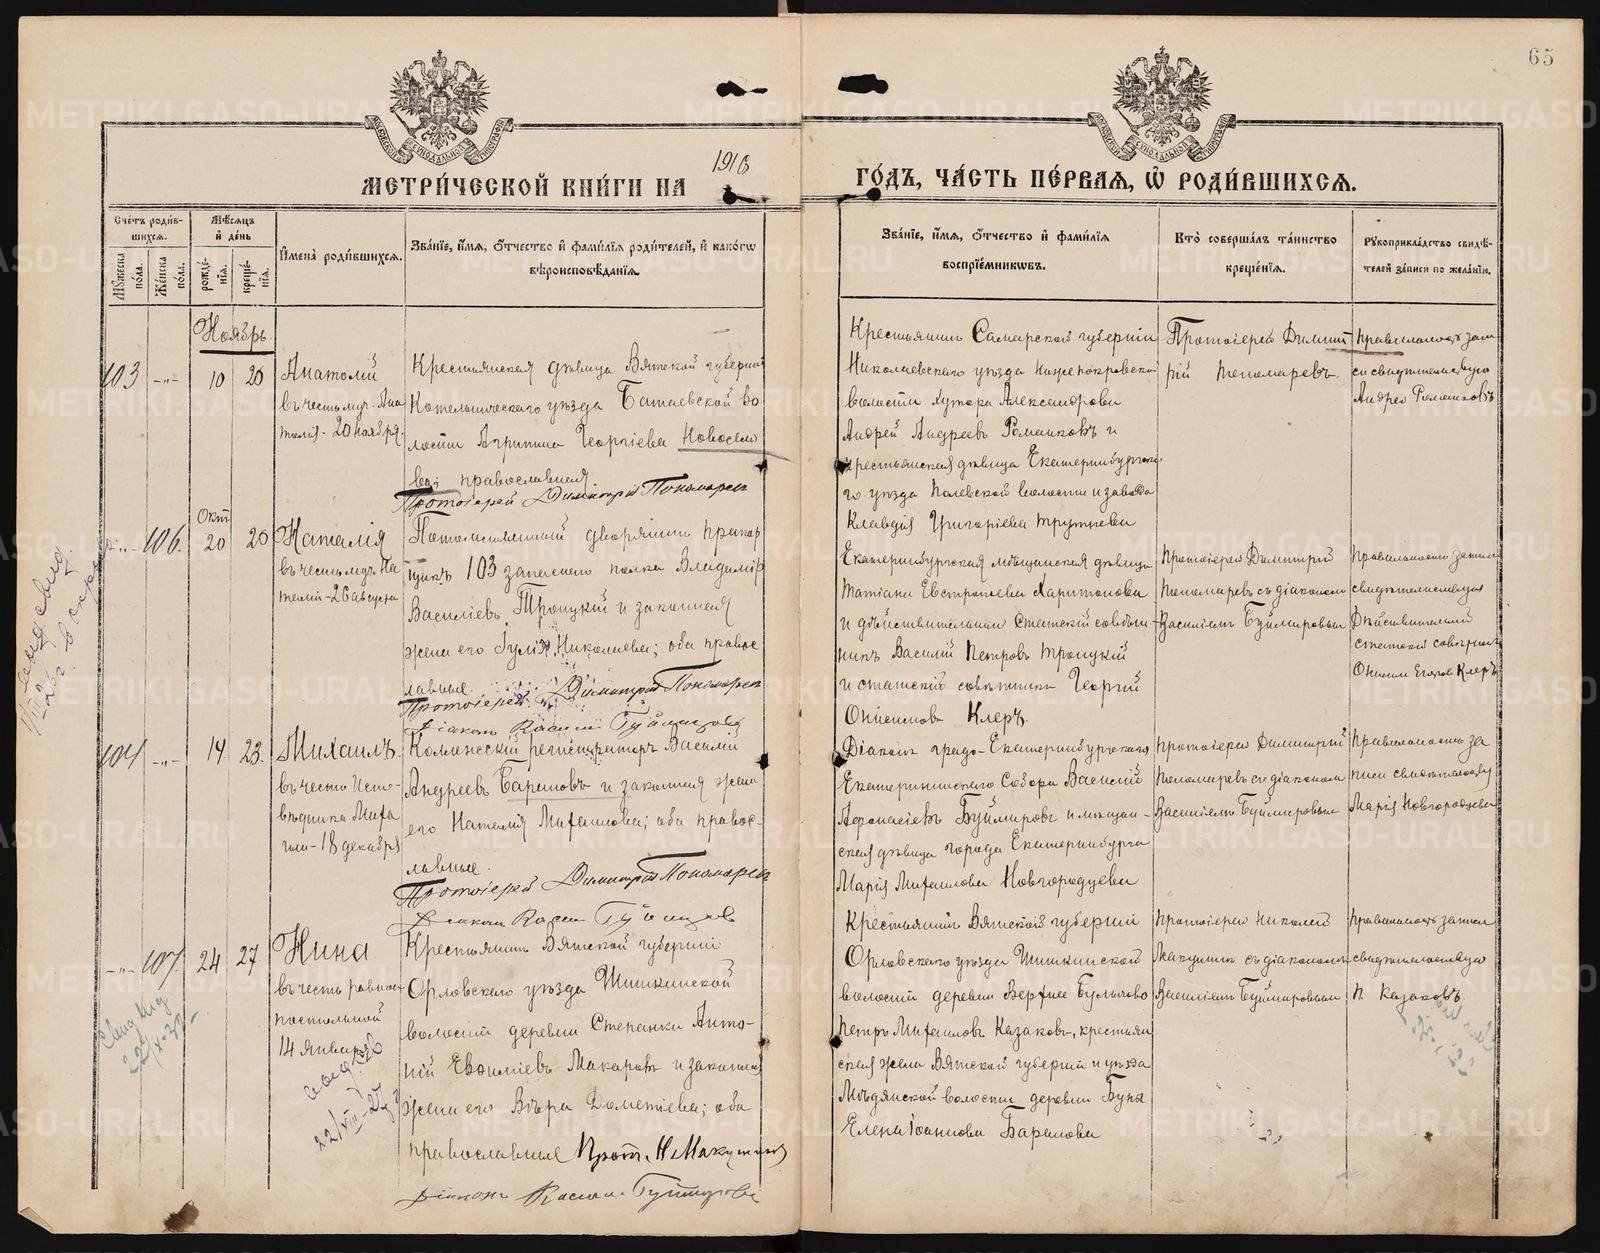 65
МЕТРИ́ЧЕСКОЙ КНИ́ГИ НА 1916
ГО́ДЪ, ЧА́СТЬ ПЕ́РВАЯ, Ѽ РОДИ́ВШИХСЯ.
Сче́тъ роди́в-
шихся.
Му́жеска по́ла.
Же́нска по́ла.
Мѣ́сяцъ
и́ де́нь
рожде́нїя.
креще́нїя.
И҆мена̀ роди́вшихся.
Зва́нїе, и҆́мя, ѻ҆́тчество и҆ фами́лїя роди́телей, и҆ како́гѡ
вѣроисповѣ́данїя.
Зва́нїе, и҆́мя, ѻ҆́тчество и҆ фами́лїя
воспрїе́мникѡвъ.
Кто̀ соверша́лъ та́инство
креще́нїя.
Рукоприкла́дство свидѣ́-
телей за́писи по жела́нїю.
Ноябрь
103 -„- 10 20
Анатолій
въ честь муч. Ана
толія - 20 ноября.
Крестьянская дѣвица Вятской губерніи
Котельническаго уѣзда Батаевской во
лости Агрипина Георгіева Новосело
ва; православная
Протоіерей Димитрій Пономаревъ
Крестьянинъ Самарской губерніи
Николаевскаго уѣзда Нижепокровской
волости хутора Александрова
Андрей Андреевъ Романковъ и
крестьянская дѣвица Екатеринбургска
го уѣзда Полевской волости и завода
Клавдія Григоріева
Протоіерей Димит
рій Пономаревъ.
Правильность зап
си свидѣтельствую
Андрей Романковъ
Окт.
-„- 106. 20 20
Наталія
въ честь муч. На
таліи - 26 августа
Потомственный дворянинъ прапор
щикъ 103 запаснаго полка Владимір
Василіевъ Троицкій и законная
жена его Іулія Николаева; оба правос
лавные.
Протоіерей Димитрій Пономаревъ
Діаконъ Василій Буймировъ
Екатеринбургская мѣщанская дѣвица
Татіана Евстропіева Харитонова
и дѣйствительный Статскій совѣт
никъ Василій Петровъ Троицкій
и статскій совѣтникъ Георгій
Онисимовъ Клеръ.
Протоіерей Димитрій
Пономаревъ съ діакономъ
Василіемъ Буймировым
Правильность записи
свидѣтельствуя
Дѣйствительный
статскій совѣтникъ
Онисим Егоров Клеръ
104 -„- 14 23.
Михаилъ
въ честь Испо-
вѣдника Миха
ила - 18 декабря
Коллежскій регистраторъ Василій
Андреевъ Бариновъ и законная жена
его Наталія Михаилова; оба правос-
лавные.
Протоіерей Димитрій Пономаревъ
Діаконъ Василій Буймировъ
Діаконъ градо-Екатеринбургскаго
Екатерининскаго Собора Василій
Аѳанасіевъ Буймировъ и мѣщан-
ская дѣвица города Екатеринбурга
Марія Михаилова Новгородцева
Протоіерей Димитрій
Пономаревъ съ діакономъ
Василіемъ Буймировым
Правильность за
писи свидѣтельствую
Марія Новгородцева
-„- 107. 24 27
Нина
въ честь равноа-
постольной
14 января
Крестьянинъ Вятской губерніи
Орловскаго уѣзда Шишкинской
волости деревни Степанки Анто-
ній Евсипіевъ Макаровъ и законная
жена его Вѣра Дометіева; оба
православные Прот. Н Макушинъ
Діаконъ Василій Буймировъ
Крестьянинъ Вятской губерніи
Орловскаго уѣзда Шишкинской
волости деревни
Петръ Михаиловъ Казаковъ, крестьян
ская жена Вятской губерніи и уѣзда
Мѣдянской волости деревни
Елена Іоаннова Баранова
Протоіерей Николай
Макушинъ съ діакономъ
Василіемъ Буймировым
Правильность записи
свидѣтельствую
П. Казаковъ.